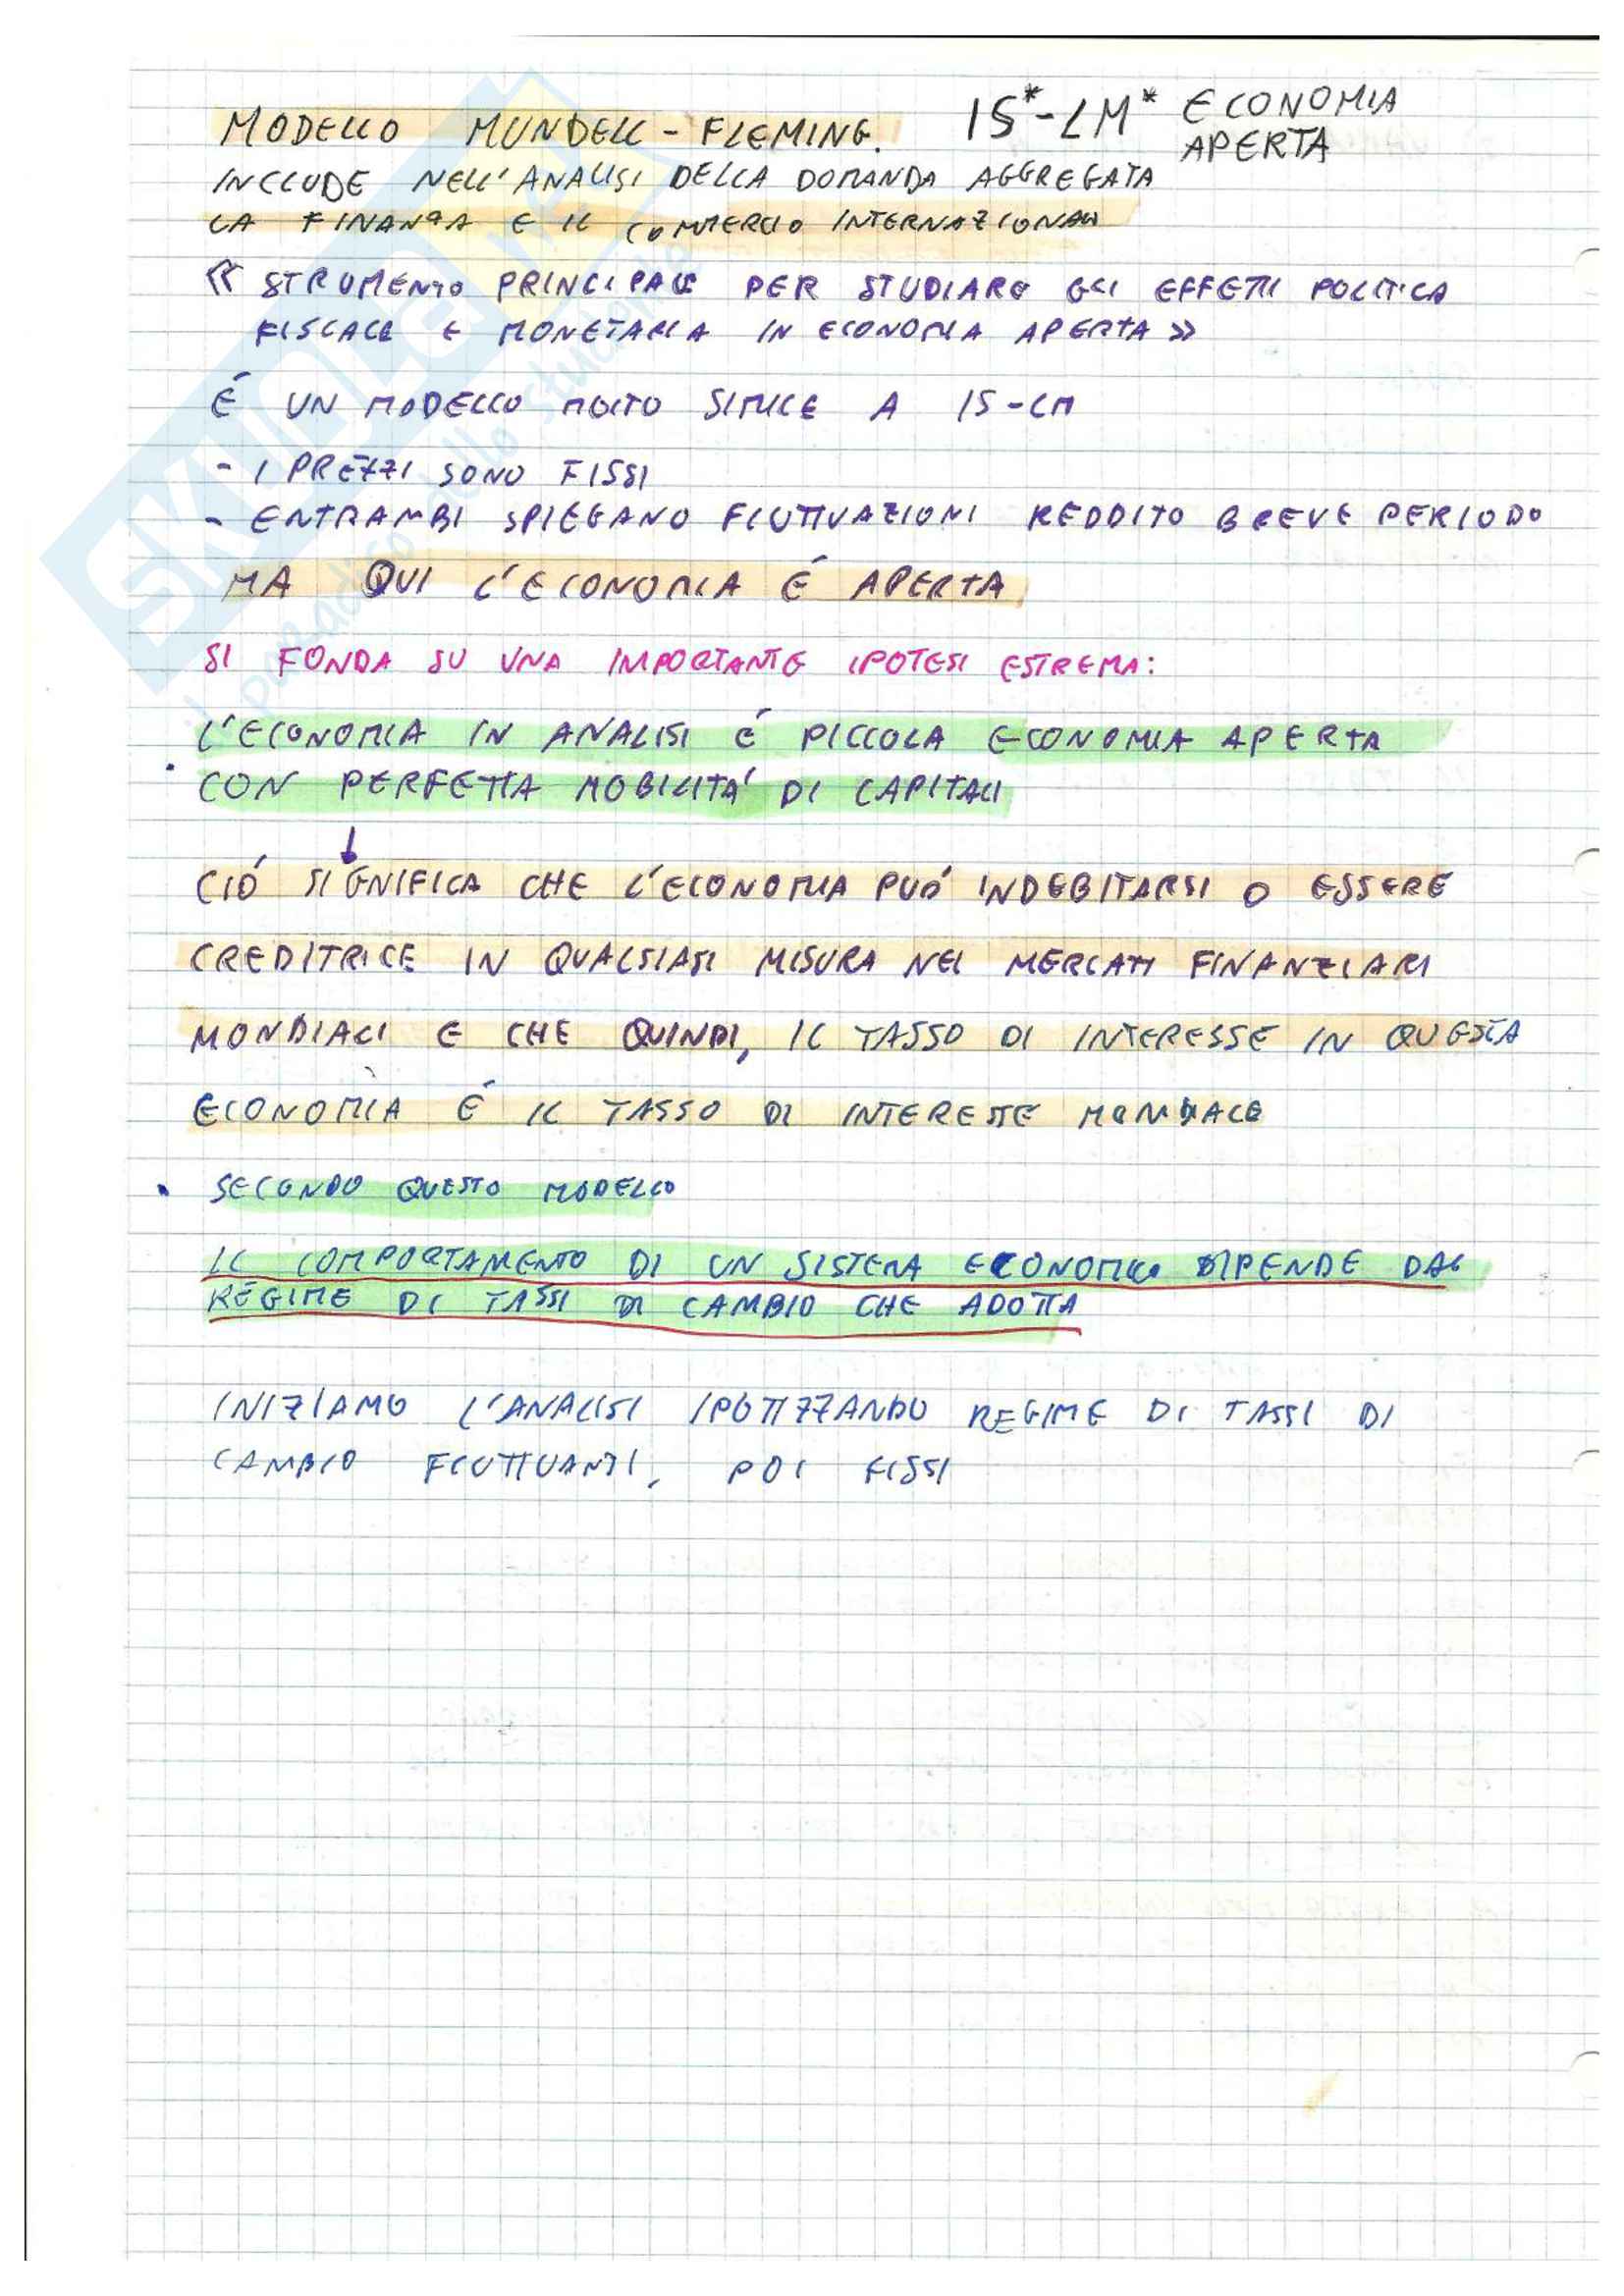 MODELLO MUNDELL-FLEMING. IS*-LM* ECONOMIA
APERTA
INCLUDE NELL'ANALISI DELLA DOMANDA AGGREGATA
LA FINANZA E IL COMMERCIO INTERNAZIONALE
« STRUMENTO PRINCIPALE PER STUDIARE GLI EFFETTI POLITICA
FISCALE E MONETARIA IN ECONOMIA APERTA »
É UN MODELLO MOLTO SIMILE A IS-LM
- I PREZZI SONO FISSI
- ENTRAMBI SPIEGANO FLUTTUAZIONI REDDITO BREVE PERIODO
MA QUI L'ECONOMIA É APERTA
SI FONDA SU UNA IMPORTANTE IPOTESI ESTREMA:
L'ECONOMIA IN ANALISI É PICCOLA ECONOMIA APERTA
CON PERFETTA MOBILITA' DI CAPITALI
↓
CIÓ SIGNIFICA CHE L'ECONOMIA PUÓ INDEBITARSI O ESSERE
CREDITRICE IN QUALSIASI MISURA NEI MERCATI FINANZIARI
MONDIALI E CHE QUINDI, IL TASSO DI INTERESSE IN QUESTA
ECONOMIA É IL TASSO DI INTERESSE MONDIALE
• SECONDO QUESTO MODELLO
IL COMPORTAMENTO DI UN SISTEMA ECONOMICO DIPENDE DAL
REGIME DI TASSI DI CAMBIO CHE ADOTTA
INIZIAMO L'ANALISI IPOTIZZANDO REGIME DI TASSI DI
CAMBIO FLUTTUANTI, POI FISSI